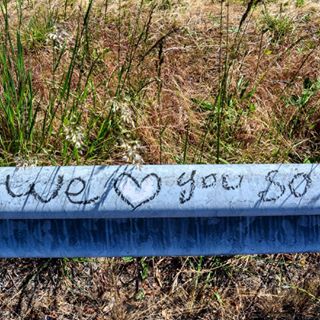 We ♡ you so